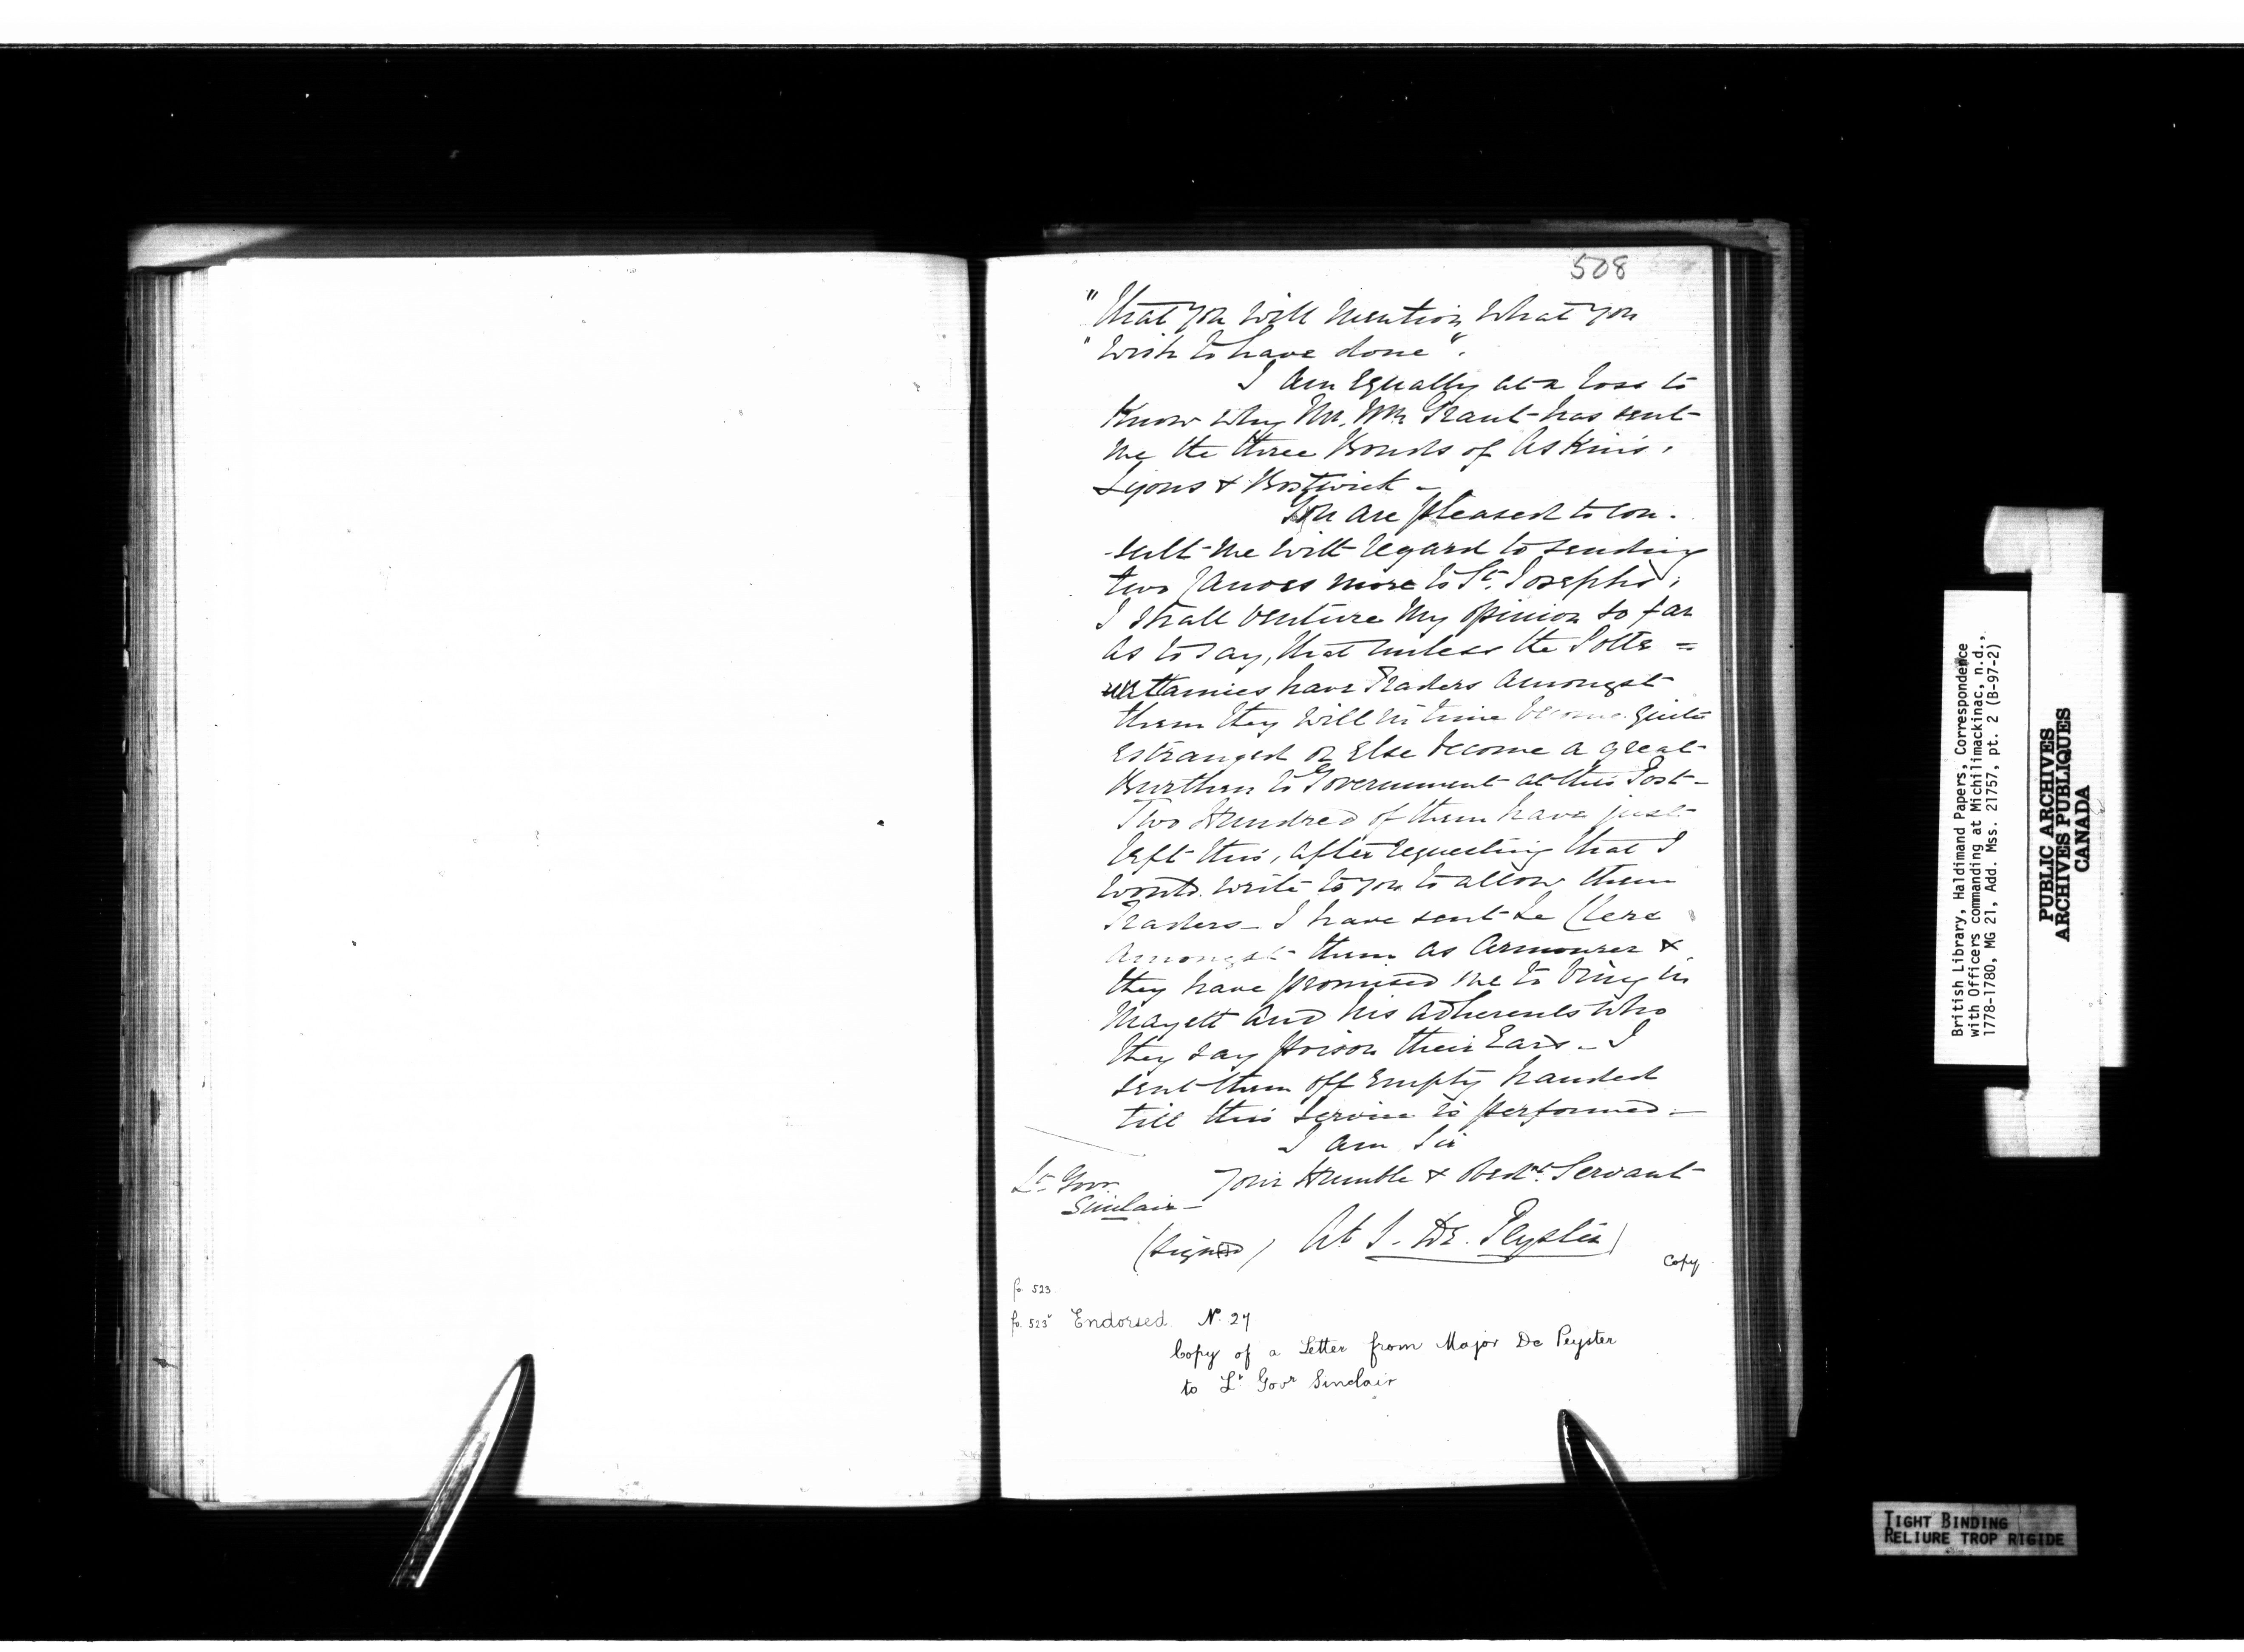 508
"that you will mention what you
"wish to have done".
I am Equally at a loss to
Know why Mr. Wm. Grant has sent
me the three Bonds of Askins,
Lyons & Bostwick -
You are pleased to con-
-sult me with regard to sending
two Canoes more to St. Josephs,
I shall venture my opinion so far
as to say, that unless the Potte =
wattamies have Traders amongst
them they will in time become quite
Estranged or Else become a great
Burthen to Government at this Post -
Two Hundred of them have just
left this, after requesting that I
would write to you to allow them
Traders - I have sent Le Clere
amongst them as Armourer &
they have promised me to bring in
Mayett and his adherents who
they say poison their Ears - I
sent them off Empty handed
till this service is performed. -
I am Sir
Your Humble & Obedt. Servant
Lt. Govr.
Sinclair -
(signed) At S. De. Peyster)
Copy
fo. 523
fo. 523v Endorsed No. 27
Copy of a Letter from Major De Peyster
to Lt Govr Sinclair
British Library, Haldimand Papers, Correspondence
with Officers commanding at Michilimackinac, n.d.,
1778-1780, MG 21, Add. Mss. 21757, pt. 2 (B-97-2)
PUBLIC ARCHIVES
ARCHIVES PUBLIQUES
CANADA
TIGHT BINDING
RELIURE TROP RIGIDE